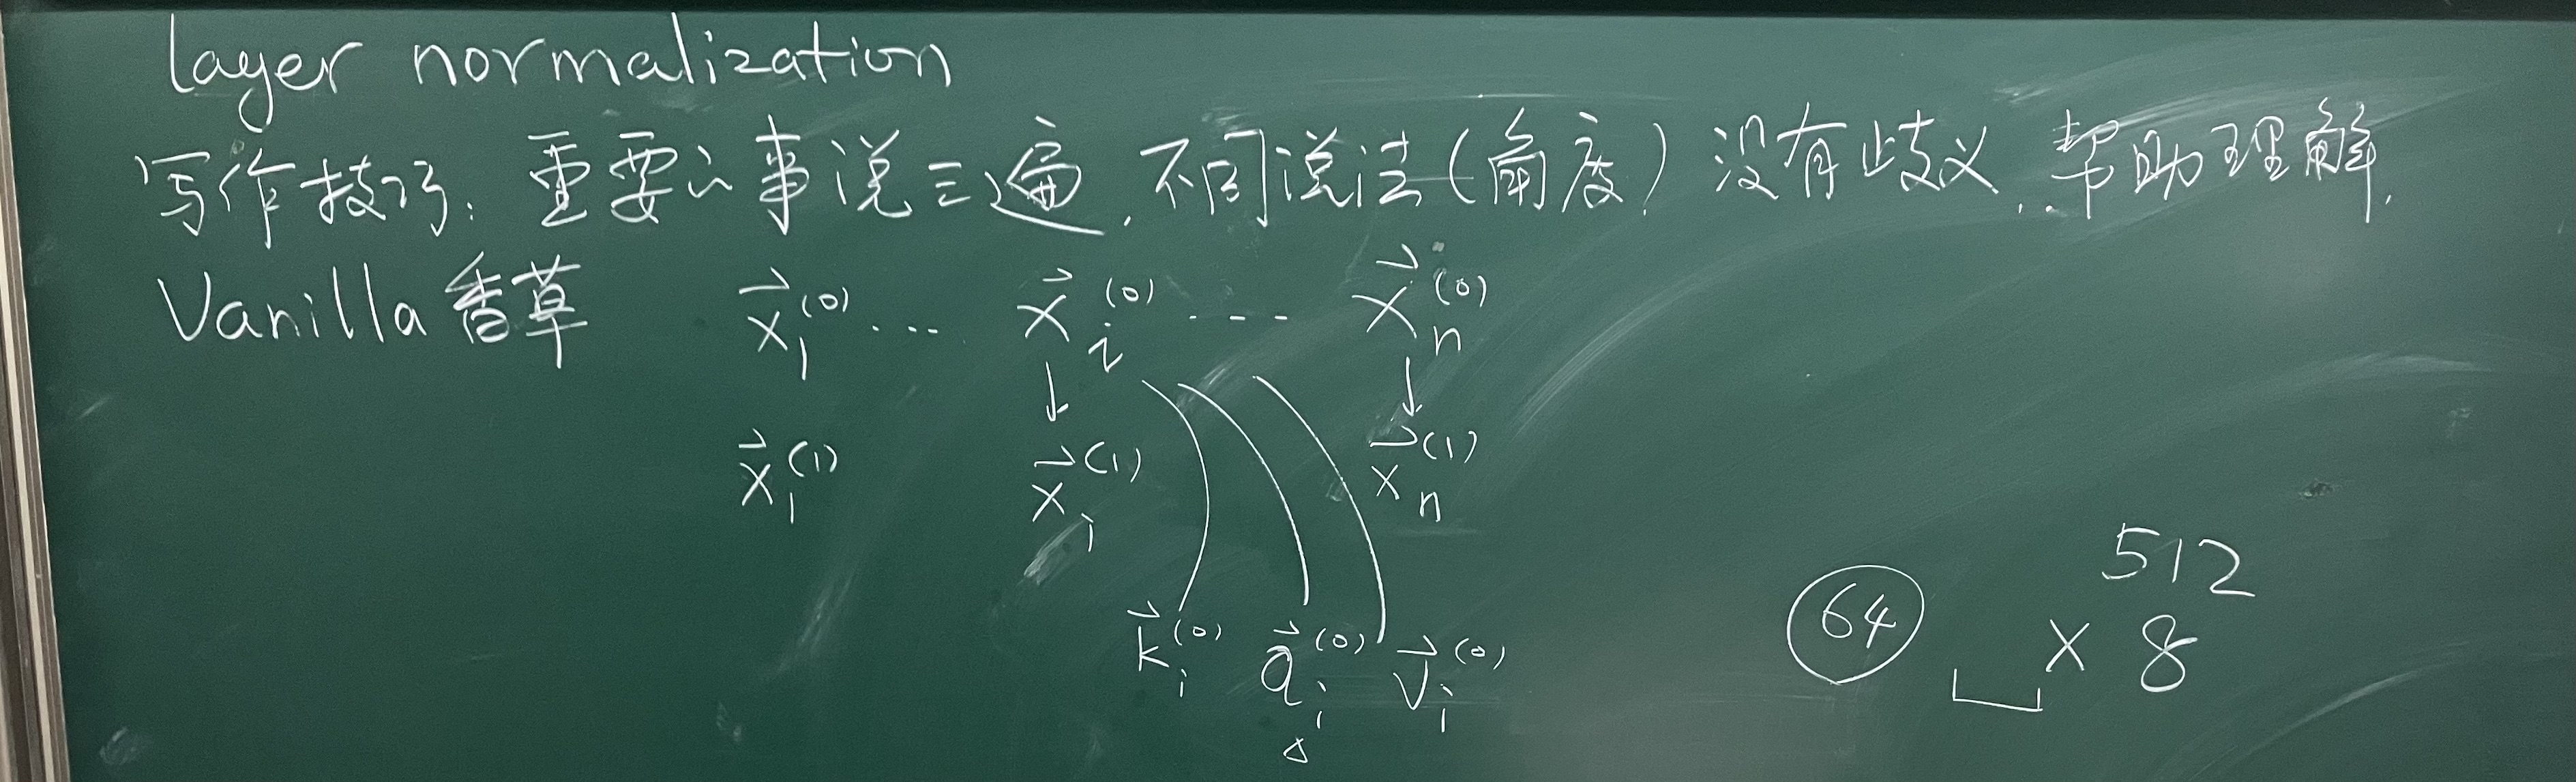 layer normalization
写作技巧: 重要的事说三遍. 不同说法(角度) 没有歧义. 帮助理解.
Vanilla 香草
x⃗₁⁽⁰⁾ ... x⃗ᵢ⁽⁰⁾ ---- x⃗ₙ⁽⁰⁾
↓ ↓
x⃗₁⁽¹⁾ x⃗ᵢ⁽¹⁾ x⃗ₙ⁽¹⁾
512
64 × 8
k⃗ᵢ⁽⁰⁾ q⃗ᵢ⁽⁰⁾ v⃗ᵢ⁽⁰⁾